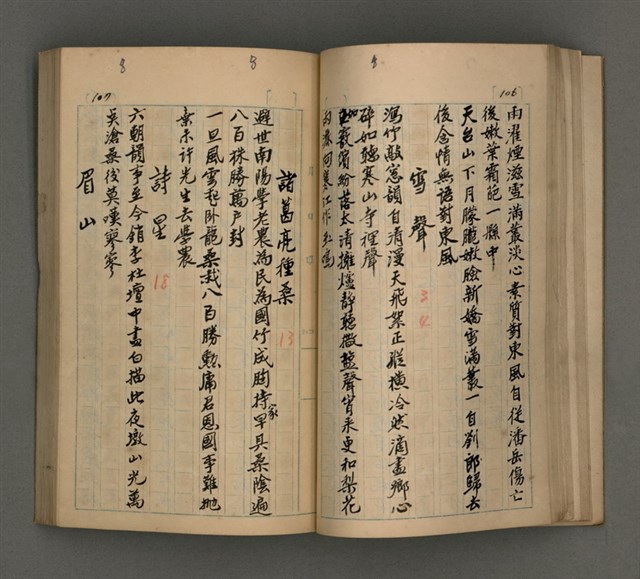 106
雨濯煙滋雪滿叢淡心素質對東風自從潘岳傷亡
後嫩葉霜葩一縣中
天台山下月朦朧嫩臉新嬌雪滿叢一自劉郎歸去
後含情無語對東風
雪聲
34
瀉竹敲窓韻自清漫天飛絮正縱橫冷然滴盡鄉心
碎如聽寒山寺裡聲
繽紛落太清擁爐靜聽撒鹽聲宵來更和梨花
107
諸葛亮種桑
13
避世南陽學老農為民為國竹成胸持家早具桑陰遍
八百株勝萬戶封
一旦風雲起臥龍桑栽八百勝勲庸君恩國事難拋
棄未許先生去學農
詩星
18
六朝韻事至今銷李杜壇中盡白描此夜墩山光萬
吳滄桑後莫嘆寥寥
眉山